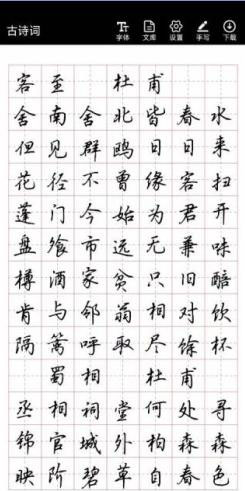 古诗词 字体 文库 设置 手写 下载
客至 杜甫
舍南舍北皆春水
但见群鸥日日来
花径不曾缘客扫
蓬门今始为君开
盘飧市远无兼味
樽酒家贫只旧醅
肯与邻翁相对饮
隔篱呼取尽馀杯
蜀相 杜甫
丞相祠堂何处寻
锦官城外柏森森
映阶碧草自春色